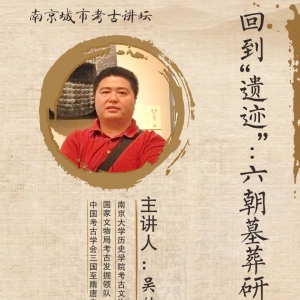 南京城市考古讲坛
回到“遗迹”：六朝墓葬研
主讲人：吴
南京大学历史学院考古文
国家文物局考古发掘领队
中国考古学会三国至隋唐